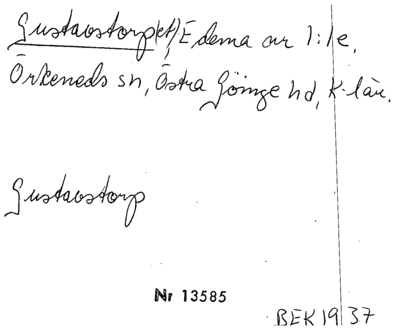 Gustavstorp(et), Edema ar 1:1e,
Örkeneds sn, Östra Göinge hd, K-län.
Gustavstorp
Nr 13585
BEK 1937